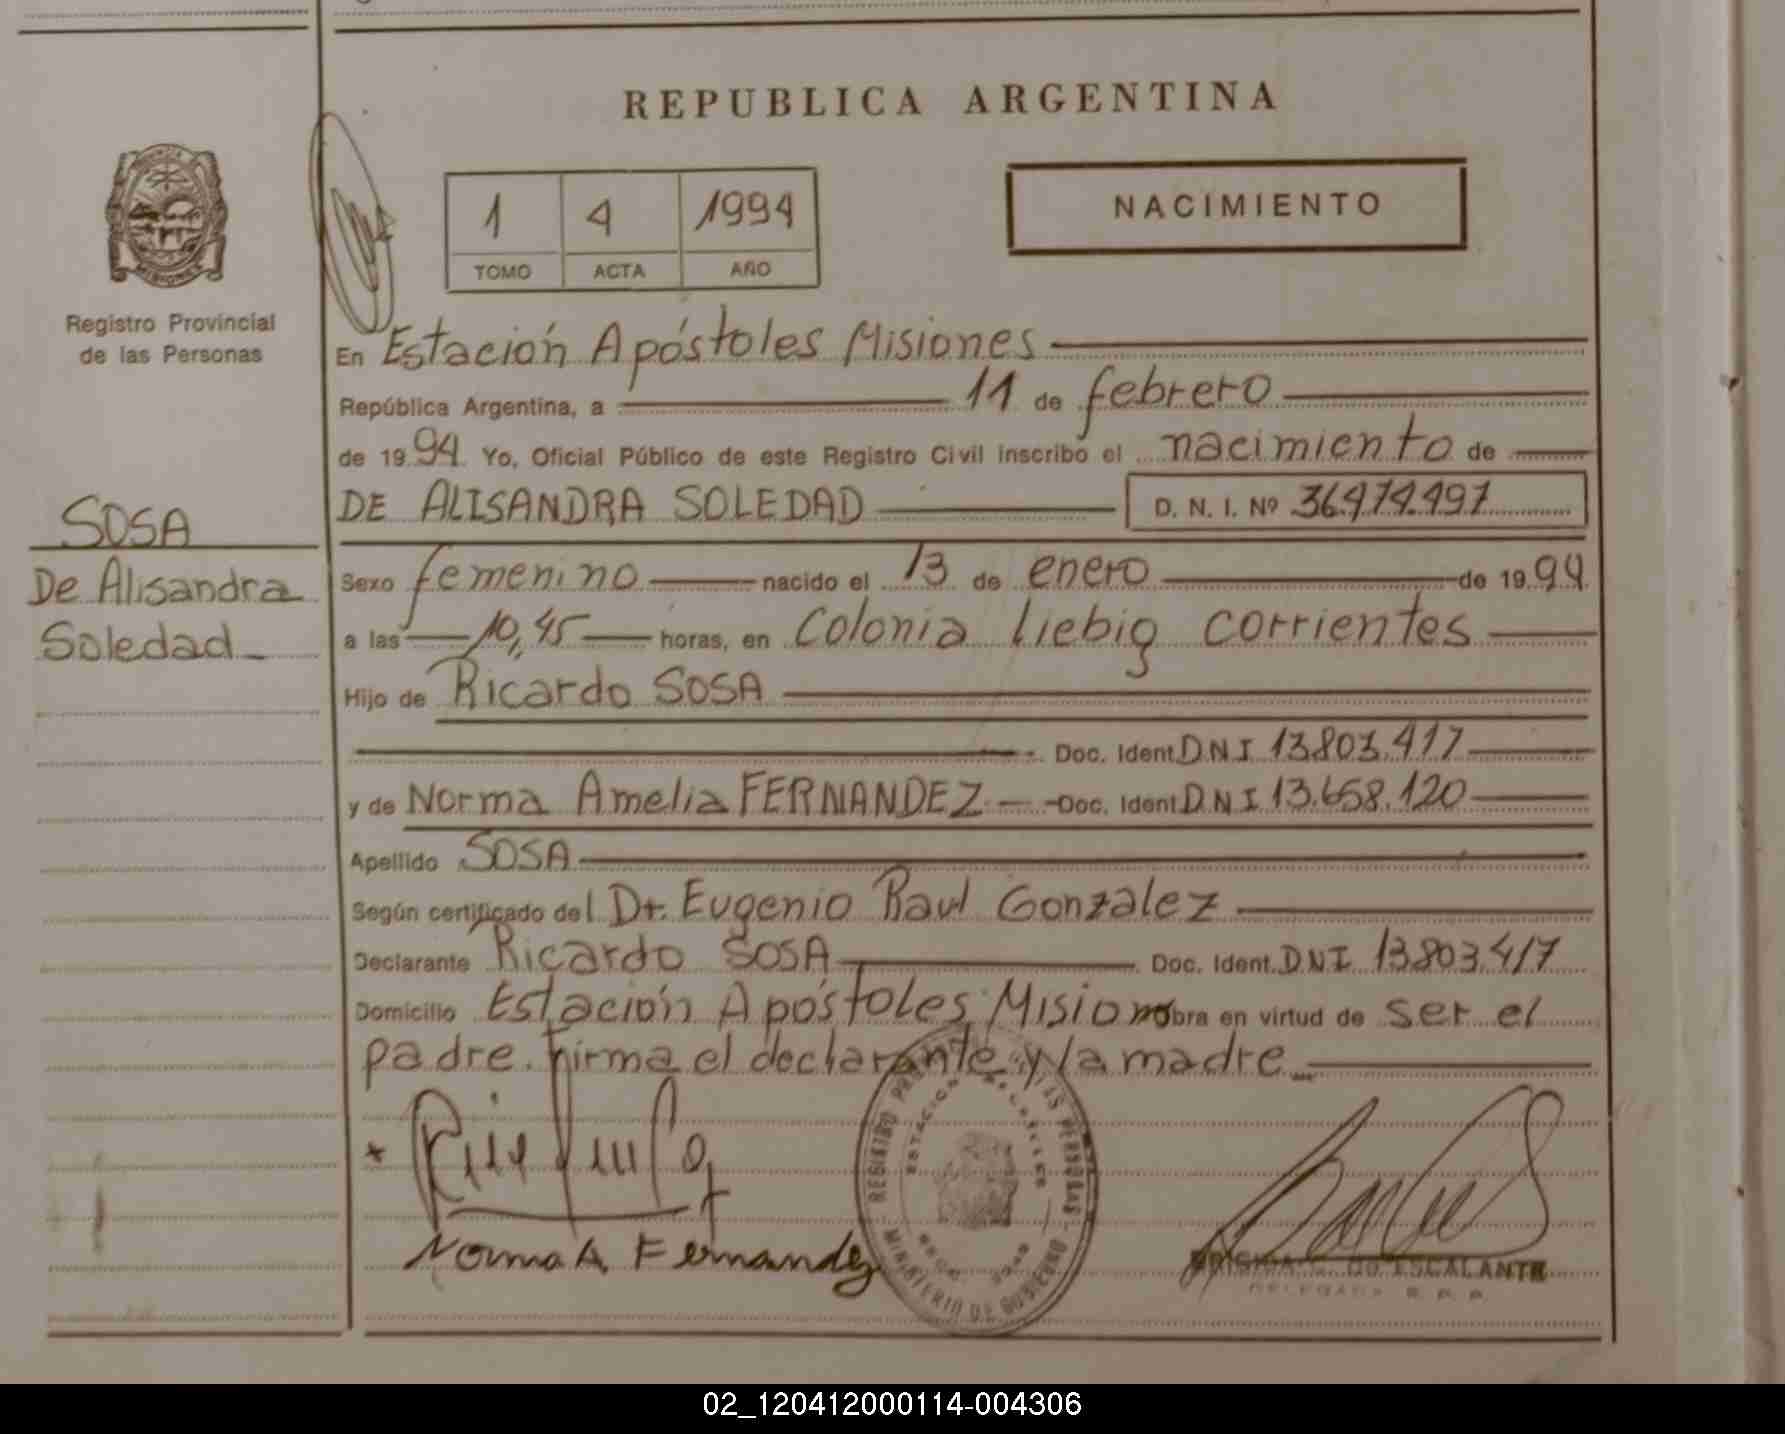 REPUBLICA ARGENTINA
NACIMIENTO
1 4 1994
TOMO ACTA AÑO
PROVINCIA
MISIONES
Registro Provincial
de las Personas
SOSA
De Alisandra
Soledad
En Estación Apóstoles Misiones
República Argentina, a 11 de febrero
de 1994 Yo, Oficial Público de este Registro Civil inscribo el nacimiento de
DE ALISANDRA SOLEDAD D. N. I. Nº 36.474.497
Sexo femenino nacido el 13 de enero de 1994
a las 10,45 horas, en Colonia liebig corrientes
Hijo de Ricardo SOSA
Doc. Ident. D.N.I 13.803.417
y de Norma Amelia FERNANDEZ Doc. Ident. D.N.I 13.658.120
Apellido SOSA
Según certificado del Dr. Eugenio Raul Gonzalez
Declarante Ricardo SOSA Doc. Ident. DNI 13.803.417
Domicilio Estación Apóstoles Misiones obra en virtud de ser el
padre. firma el declarante y la madre
Norma A Fernandez
REGISTRO PROVINCIAL DE LAS PERSONAS
MINISTERIO DE GOBIERNO
ESTACION APOSTOLES
BRIGIDA C. DO ESCALANTE
DELEGADA R. P. P.
02_120412000114-004306